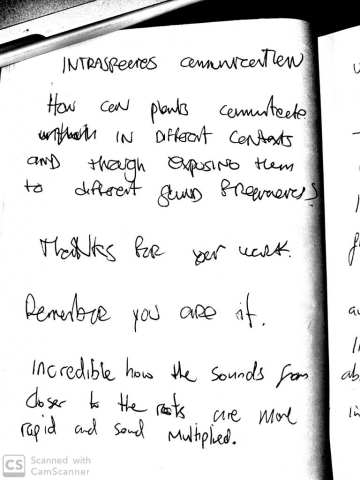 INTRASPECIES COMMUNICATION
How can plants communicate
IN DIFFERENT CONTEXTS
AND though exposing them
to different sound frequencies?
THANKS FOR your work.
Remember you are it.
Incredible how the sounds from
closer to the roots are more
rapid and sound multiplied.
CS Scanned with
CamScanner